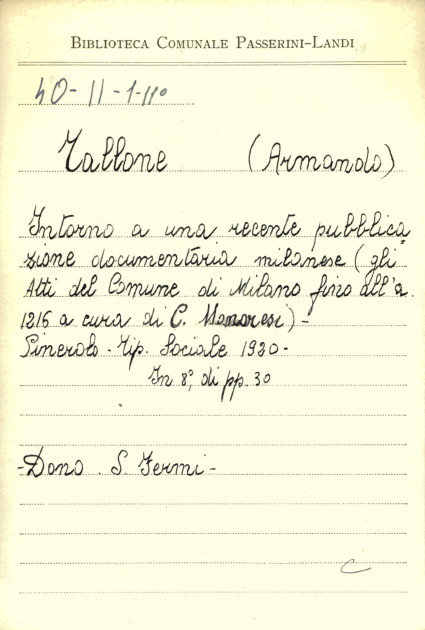 BIBLIOTECA COMUNALE PASSERINI-LANDI
40-II-1-11°
Tallone (Armando)
Intorno a una recente pubblica=
zione documentaria milanese (gli
Atti del Comune di Milano fino all'a.
1216 a cura di C. Manaresi) -
Pinerolo - Tip. Sociale 1920 -
In 8°, di pp. 30
- Dono S. Fermi -
C